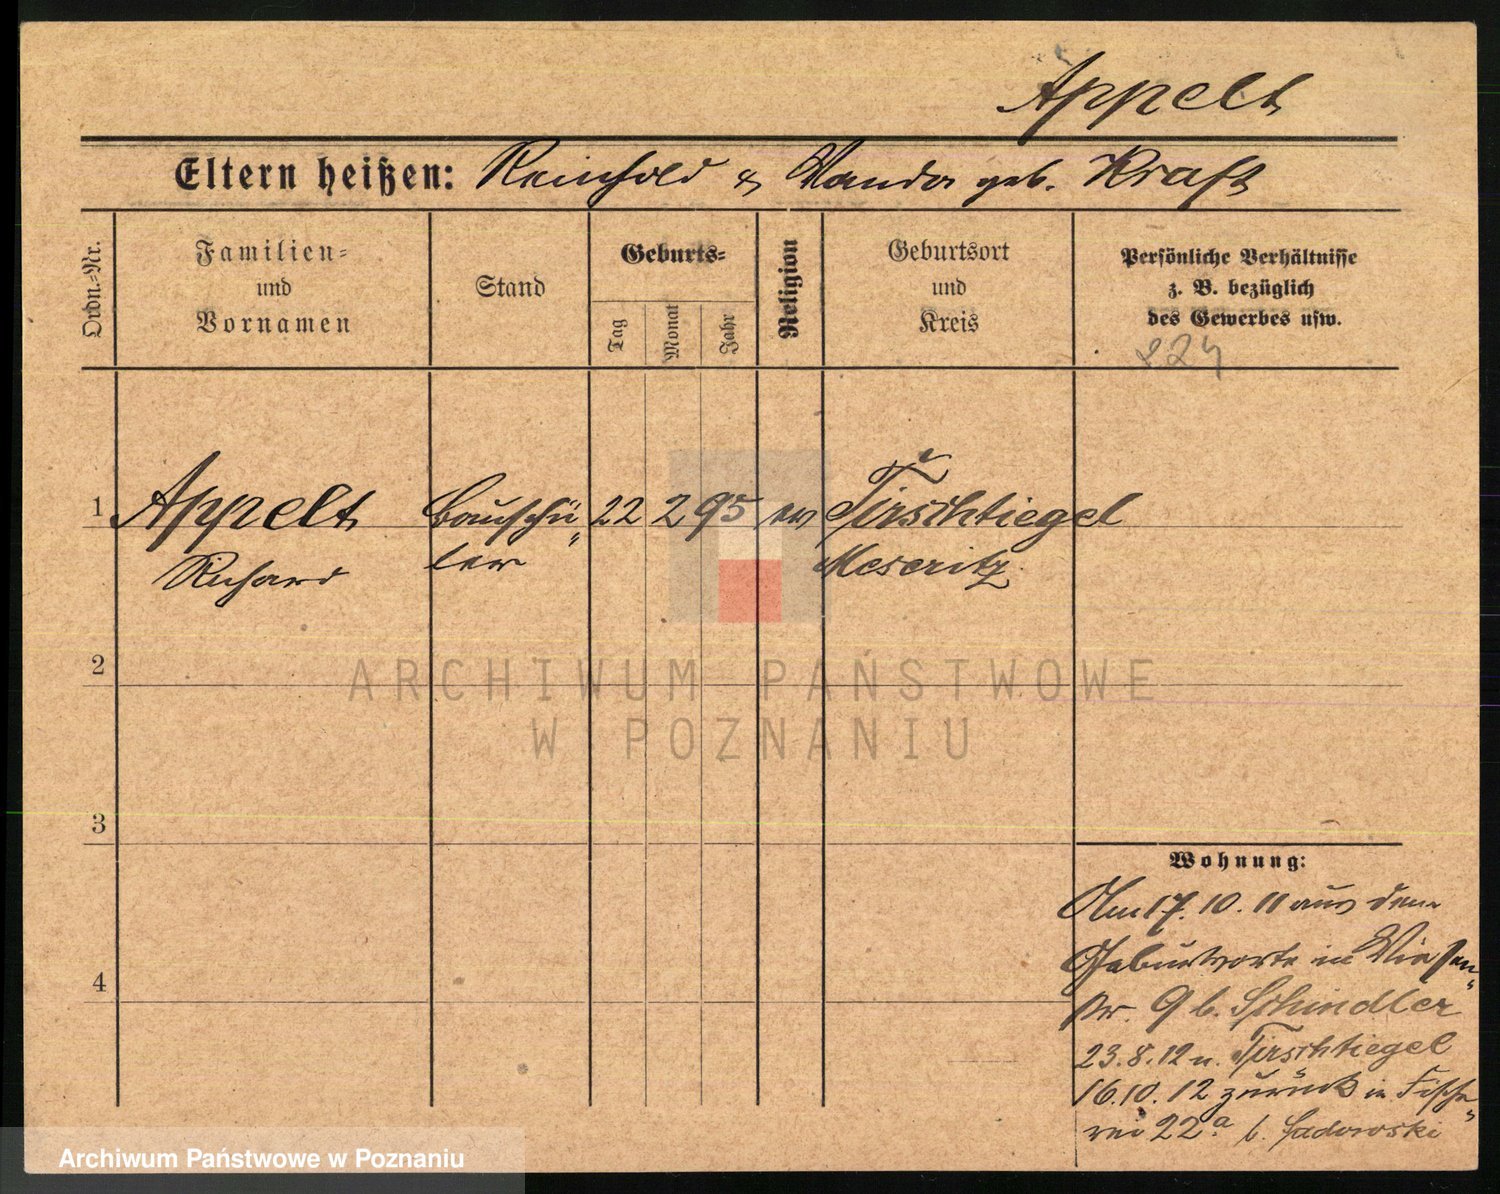 Appelt
Eltern heißen: Reinhold & Wanda geb. Kraft
Ordn.-Nr.
Familien-
und
Vornamen
Stand
Geburts-
Tag
Monat
Jahr
Religion
Geburtsort
und
Kreis
Persönliche Verhältnisse
z. B. bezüglich
des Gewerbes usw.
224
1 Appelt Bauschü- 22 2 95 ev Tirschtiegel
Richard ler Meseritz
2
3
4
Wohnung:
Am 17.10.11 aus dem
Geburtsorte in Wiesen-
str. 9 b. Schindler
23.8.12 n. Tirschtiegel
16.10.12 zurück in Fische-
rei 22a b. Sadowski
ARCHIWUM PAŃSTWOWE
W POZNANIU
Archiwum Państwowe w Poznaniu